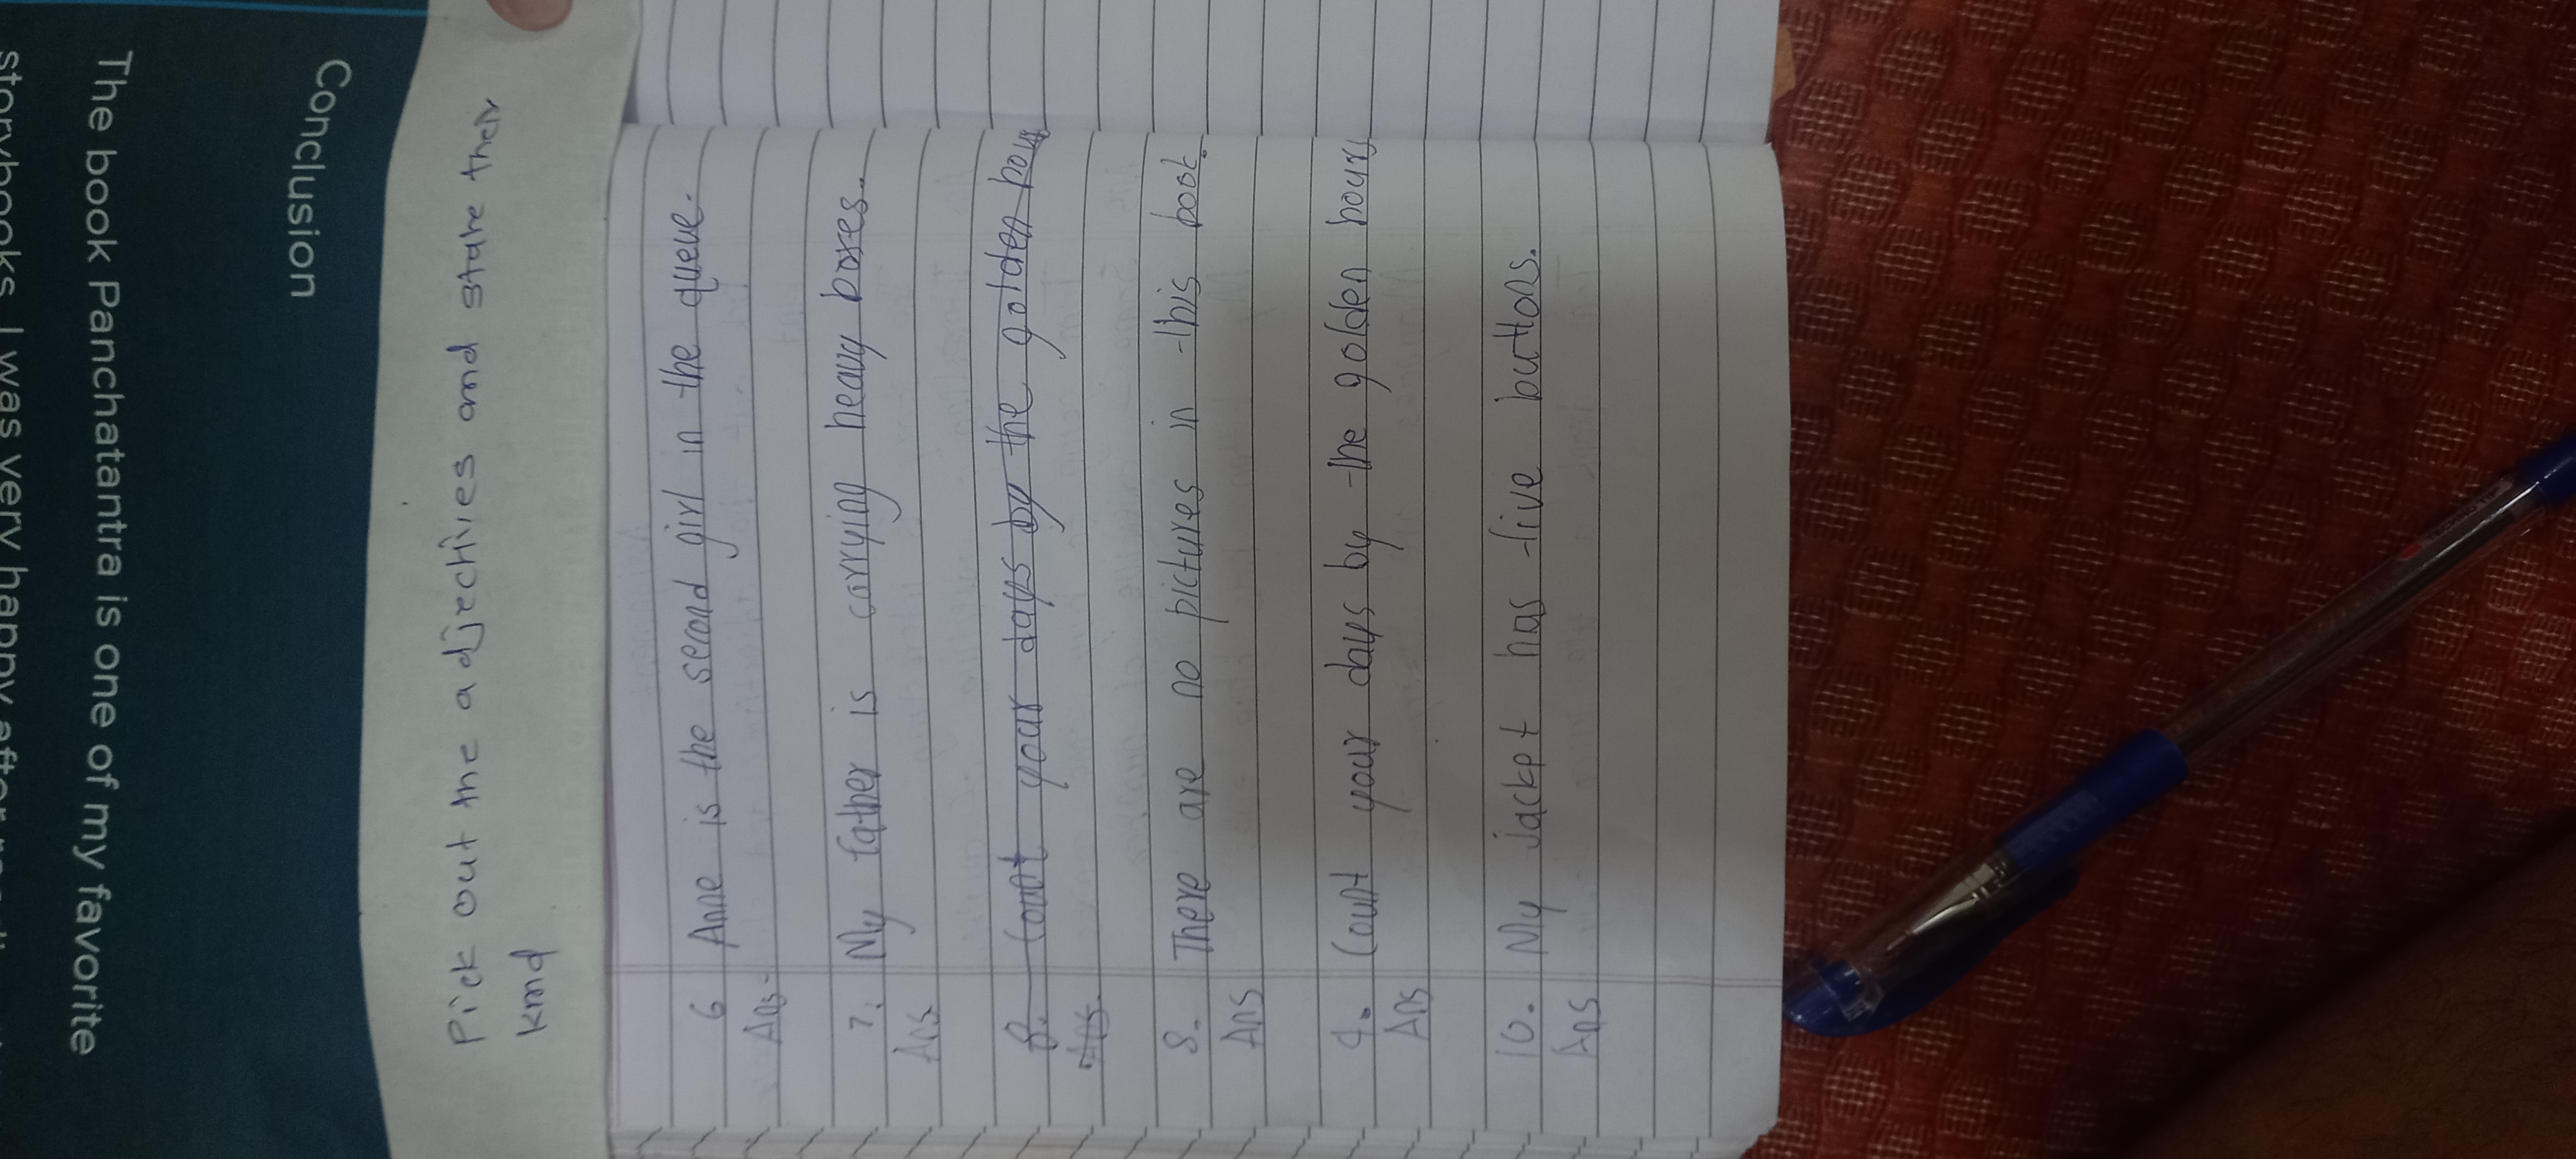 storybooks. I was very happy after
The book Panchatantra is one of my favorite
Conclusion
Pick out the adjectives and state their
kind
6 Anne is the second girl in the queue.
Ans-
7. My father is carrying heavy boxes.
Ans
8. Count your days by the golden hour
Ans.
8. There are no pictures in this book.
Ans
9. Count your days by the golden hours
Ans
10. My jacket has five buttons.
Ans